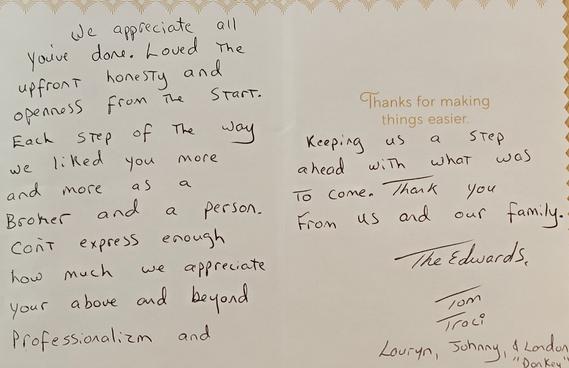 We appreciate all
you've done. Loved The
upfront honesty and
openness from The START.
Each STep of The way
we liked you more
and more as a
Broker and a person.
Can't express enough
how much we appreciate
your above and beyond
Professionalizm and
Thanks for making
things easier.
Keeping us a STep
ahead with what was
To come. Thank you
From us and our family.
The Edwards,
Tom
Traci
Lauryn, Johnny, & London
"Donkey"